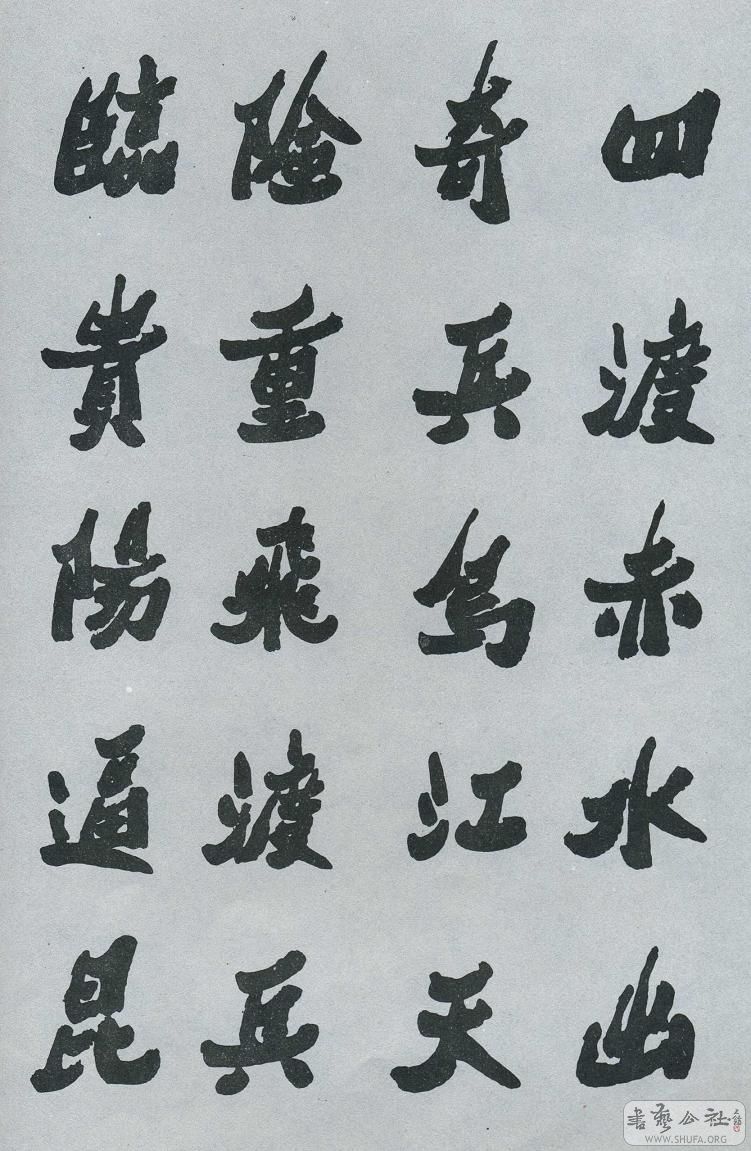 四渡赤水出
奇兵烏江天
險重飛渡兵
臨貴陽逼昆
書藝公社
WWW.SHUFA.ORG